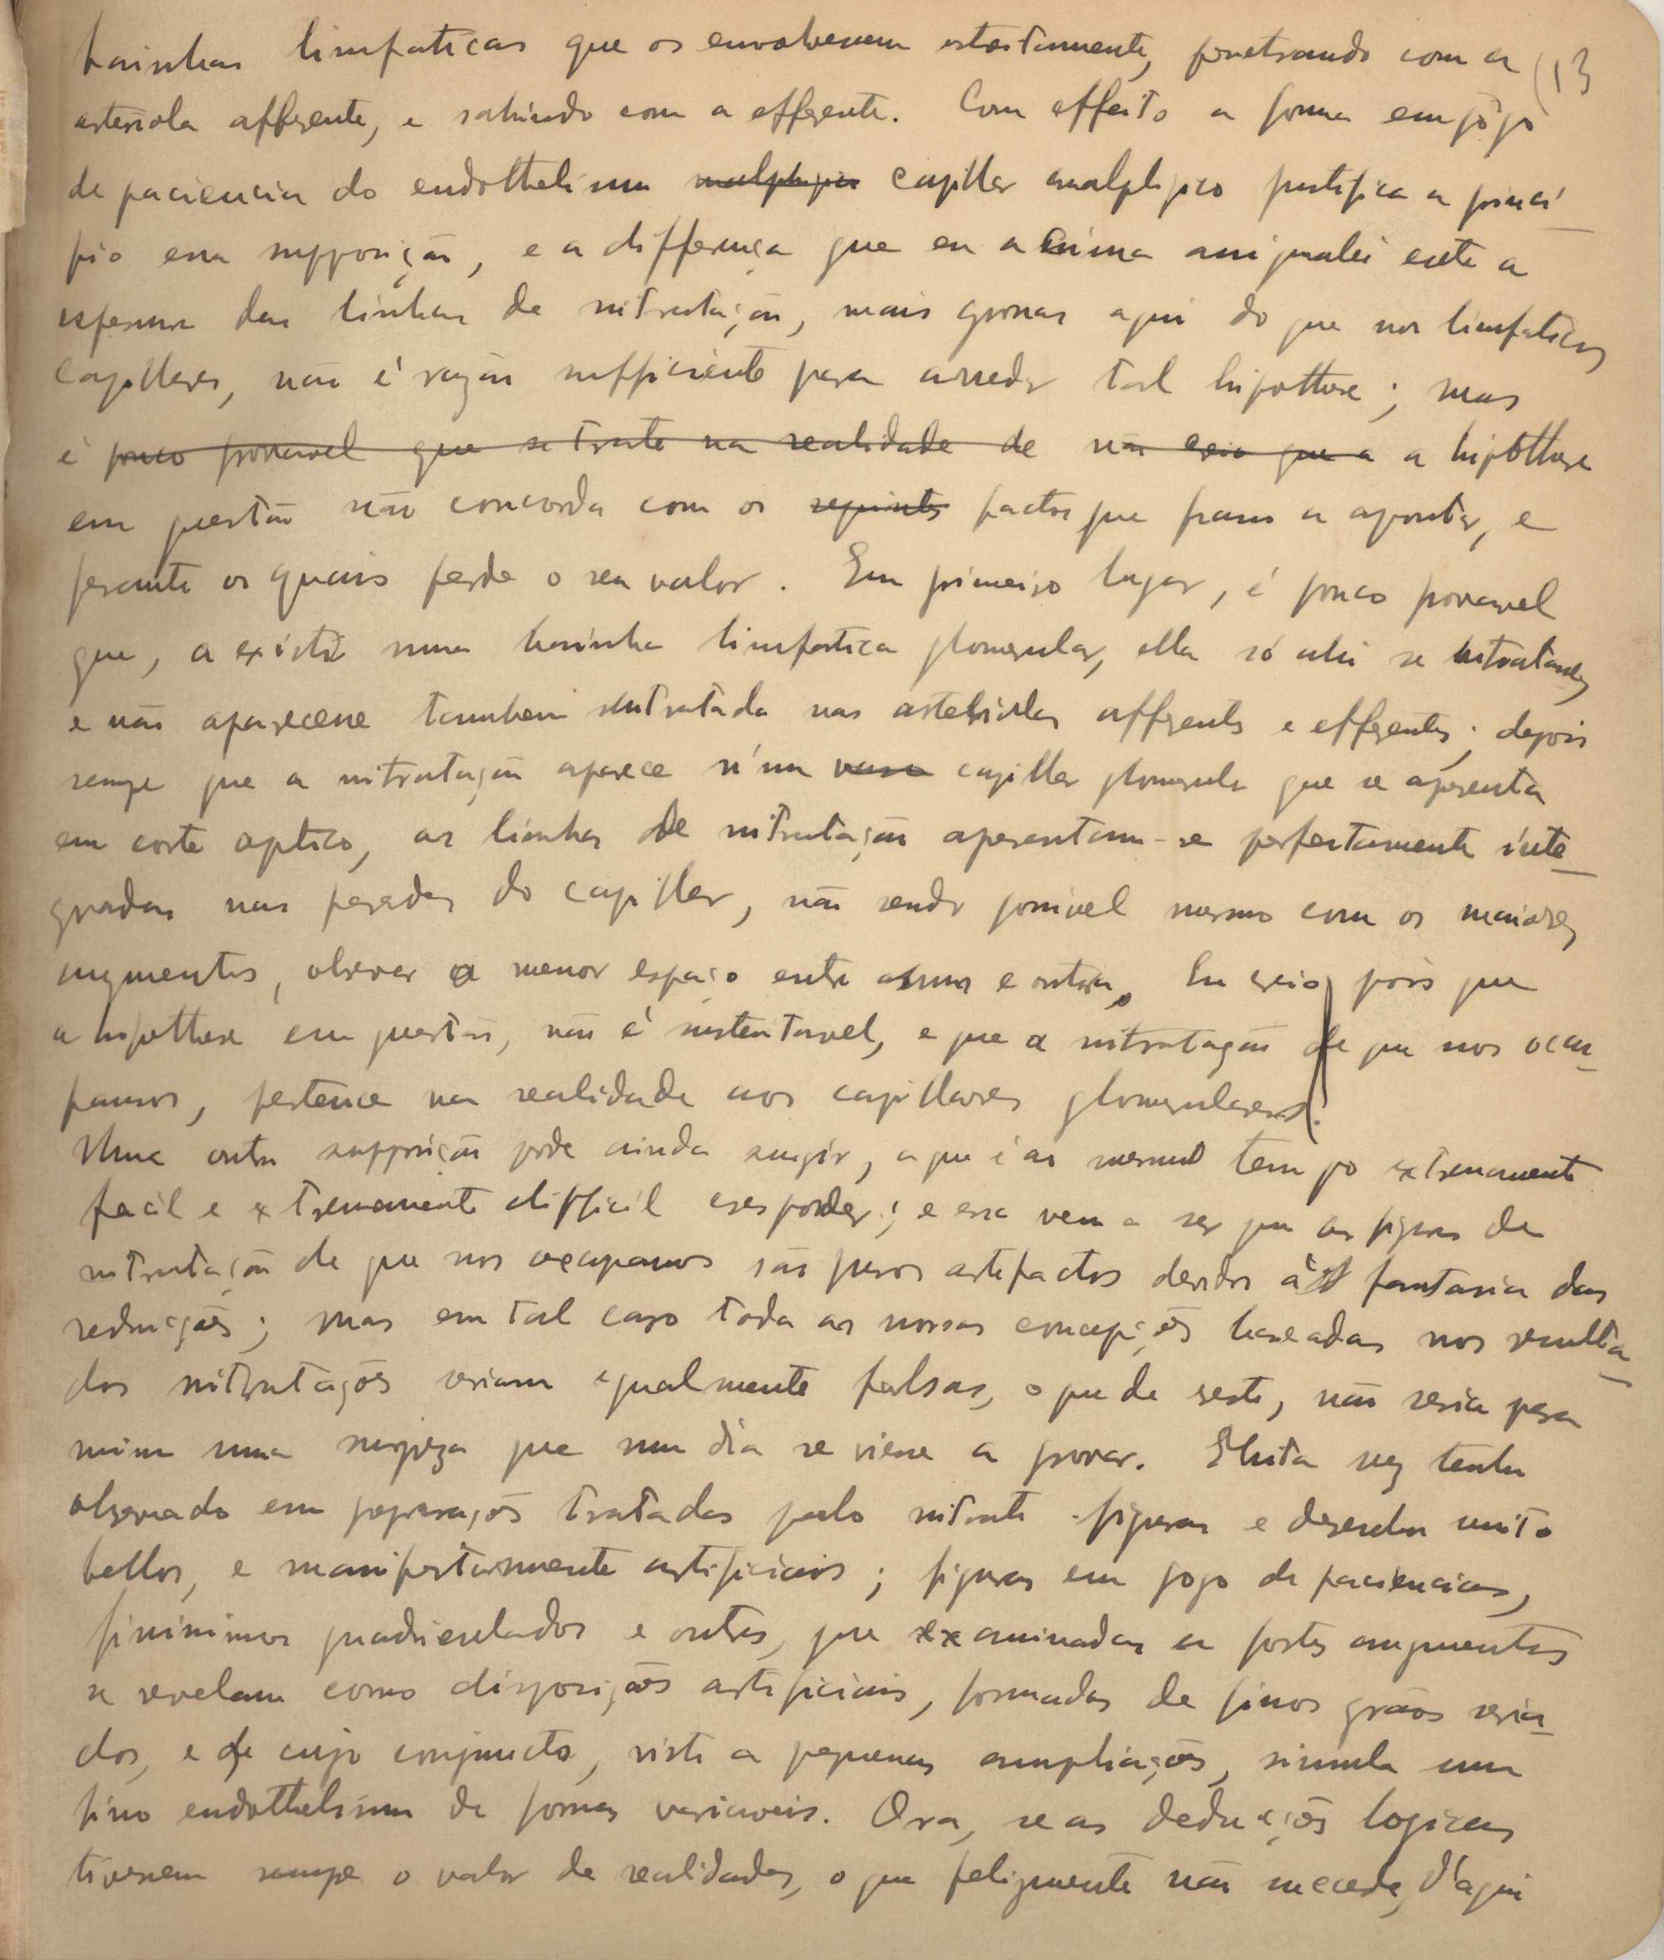 bainhas limfaticas que os envolvessem estreitamente, penetrando com a (13
arteriola afferente, e sahindo com a efferente. Com effeito a forma em jôgo
de paciencia do endothelium malphigico capillar malphigico justifica a princi-
pio essa supposição, e a differença que eu acima assignalei entre a
espessura das linhas de nitratação, mais grossas aqui do que nos limfaticos
capillares, não é razão sufficiente para arredar tal hipothese; mas
é pouco provavel que se trate na realidade de não creio que a a hipothese
em questão não concorda com os seguintes factos que passo a apontar, e
perante os quais perde o seu valor. Em primeiro lugar, é pouco provavel
que, a existir uma bainha limfatica glomerular, ella só ahi se nitratasse,
e não aparecesse tambem nitratada nas arteriolas afferentes e efferentes; depois
sempre que a nitratação aparece n'um vaso capillar glomerular que se apresenta
em corte optico, as linhas de nitratação apresentam-se perfeitamente inte-
gradas nas paredes do capillar, não sendo possivel mesmo com os maiores
augmentos, observar o menor espaço entre umas e outras. Eu creio pois que
a hipothese em questão, não é sustentavel, e que a nitratação de que nos ocu-
pamos, pertence na realidade aos capillares glomerulares.
Uma outra supposição pode ainda surgir, a que é ao mesmo tempo extremamente
facil e extremamente difficil responder; e essa vem a ser que as figuras de
nitratação de que nos occupamos são puros artefactos devidos á fantasia das
reducções; mas em tal caso toda as nossas concepções baseadas nos resulta-
dos nitratações seriam egualmente falsas, o que de resto, não seria para
mim uma surpreza que um dia se viesse a provar. Muita vez tenho
observado em preparações tratadas pelo nitrato figuras e desenhos muito
bellos, e manifestamente artificiais; figuras em jogo de paciencias,
finissimos quadriculados e outros, que examinadas a fortes augmentos
se revelam como disposições artificiais, formadas de finos grãos seria-
dos, e de cujo conjuncto, visto a pequenas ampliações, simula um
fino endothelium de formas variaveis. Ora, se as deducções logicas
tivessem sempre o valor de realidades, o que felizmente não succede, d'aqui